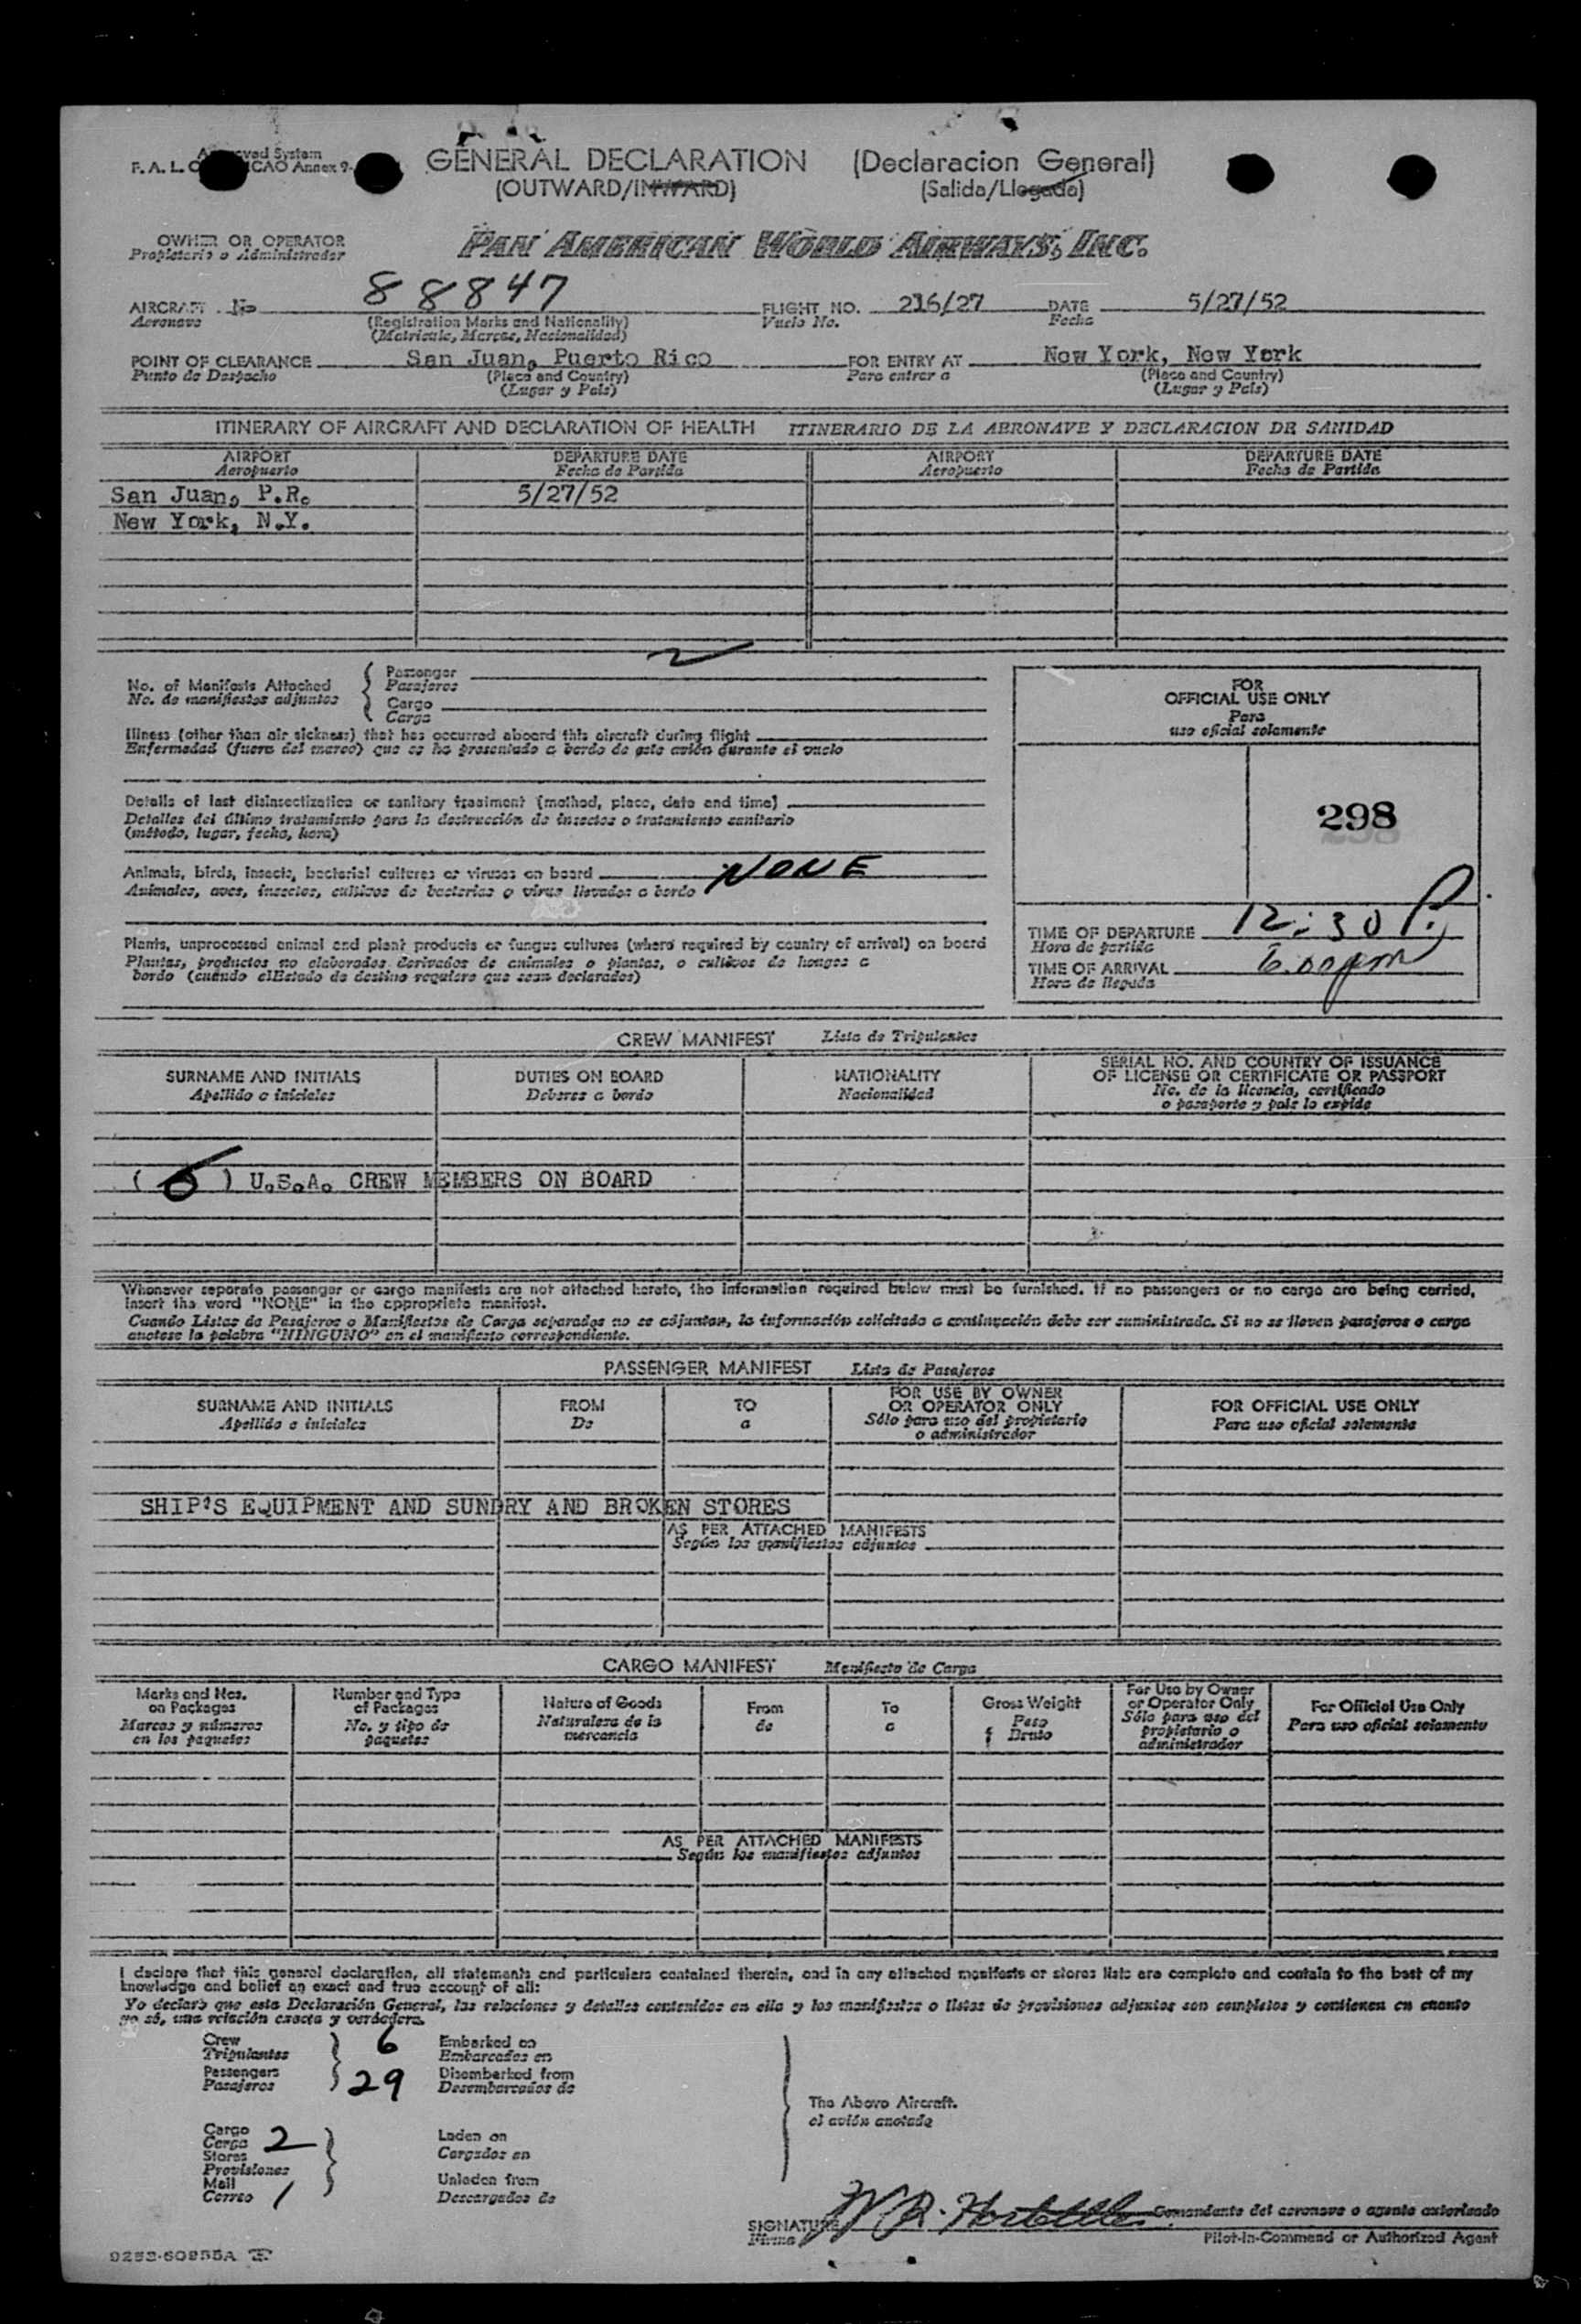 GENERAL DECLARATION (Declaracion General)
(OUTWARD/INWARD) (Salida/Llegada)
System
F. A. L. ICAO Annex 9-
OWNER OR OPERATOR PAN AMERICAN WORLD AIRWAYS, INC.
Propietario o Administrador
AIRCRAFT No 88847 FLIGHT NO. 216/27 DATE 5/27/52
Aeronave (Registration Marks and Nationality) Vuelo No. Fecha
(Matricula, Marcas, Nacionalidad)
POINT OF CLEARANCE San Juan, Puerto Rico FOR ENTRY AT New York, New York
Punto de Despacho (Place and Country) Para entrar a (Place and Country)
(Lugar y Pais) (Lugar y Pais)
ITINERARY OF AIRCRAFT AND DECLARATION OF HEALTH ITINERARIO DE LA AERONAVE Y DECLARACION DE SANIDAD
AIRPORT DEPARTURE DATE AIRPORT DEPARTURE DATE
Aeropuerto Fecha de Partida Aeropuerto Fecha de Partida
San Juan, P.R. 5/27/52
New York, N.Y.
2
No. of Manifests Attached Passenger
No. de manifiestos adjuntos Pasajeros
Cargo
Carga
Illness (other than air sickness) that has occurred aboard this aircraft during flight
Enfermedad (fuera del mareo) que se ha presentado a bordo de este avión durante el vuelo
Details of last disinsectization or sanitary treatment (method, place, date and time)
Detalles del último tratamiento para la destrucción de insectos o tratamiento sanitario
(método, lugar, fecha, hora)
Animals, birds, insects, bacterial cultures or viruses on board NONE
Animales, aves, insectos, cultivos de bacterias o virus llevados a bordo
Plants, unprocessed animal and plant products or fungus cultures (where required by country of arrival) on board
Plantas, productos no elaborados derivados de animales o plantas, o cultivos de hongos a
bordo (cuando el Estado de destino requiere que sean declarados)
FOR
OFFICIAL USE ONLY
Para
uso oficial solamente
298
TIME OF DEPARTURE 12:30 P.
Hora de partida
TIME OF ARRIVAL 6.00pm
Hora de llegada
CREW MANIFEST Lista de Tripulantes
SURNAME AND INITIALS DUTIES ON BOARD NATIONALITY SERIAL NO. AND COUNTRY OF ISSUANCE
OF LICENSE OR CERTIFICATE OR PASSPORT
Apellido e iniciales Deberes a bordo Nacionalidad No. de la licencia, certificado
o pasaporte y pais lo expide
( 6 ) U.S.A. CREW MEMBERS ON BOARD
Whenever separate passenger or cargo manifests are not attached hereto, the information required below must be furnished. If no passengers or no cargo are being carried,
insert the word "NONE" in the appropriate manifest.
Cuando Listas de Pasajeros o Manifiestos de Carga separados no se adjuntan, la información solicitada a continuación debe ser suministrada. Si no se lleven pasajeros o carga
anotese la palabra "NINGUNO" en el manifiesto correspondiente.
PASSENGER MANIFEST Lista de Pasajeros
SURNAME AND INITIALS FROM TO FOR USE BY OWNER
OR OPERATOR ONLY FOR OFFICIAL USE ONLY
Apellido e iniciales De a Sólo para uso del propietario
o administrador Para uso oficial solamente
SHIP'S EQUIPMENT AND SUNDRY AND BROKEN STORES
AS PER ATTACHED MANIFESTS
Según los manifiestos adjuntos
CARGO MANIFEST Manifiesto de Carga
Marks and Nos.
on Packages
Marcas y números
en los paquetes
Number and Type
of Packages
No. y tipo de
paquetes
Nature of Goods
Naturaleza de la
mercancia
From
de
To
a
Gross Weight
Peso
Bruto
For Use by Owner
or Operator Only
Sólo para uso del
propietario o
administrador
For Official Use Only
Para uso oficial solamente
AS PER ATTACHED MANIFESTS
Según los manifiestos adjuntos
I declare that this general declaration, all statements and particulars contained therein, and in any attached manifests or stores lists are complete and contain to the best of my
knowledge and belief an exact and true account of all:
Yo declaro que esta Declaración General, las relaciones y detalles contenidos en ella y los manifiestos o listas de provisiones adjuntos son completos y contienen en cuanto
yo sé, una relación exacta y verdadera.
Crew 6 Embarked on
Tripulantes Embarcados en
Passengers 29 Disembarked from
Pasajeros Desembarcados de
The Above Aircraft.
el avión anotado
Cargo
Carga 2 Laden on
Stores Cargados en
Provisiones
Mail Unladen from
Correo 1 Descargados de
SIGNATURE Comandante del aeronave o agente autorizado
Firma Pilot-in-Command or Authorized Agent
9252-60955A